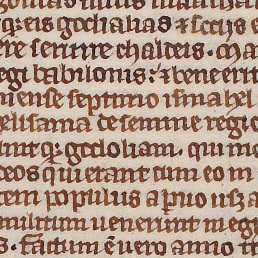 q; eis godolias ⁊ sociis e
ere seruire chaldeis. Ma
egi babilonis: ⁊ bene erit
mense septimo ismahel
elisama de semine regio
unt q; godoliam. qui mo
deos qui erant cum eo in
tem populus a paruo usq; a
militum uenerunt in eg
s. Factum ē uero anno tr